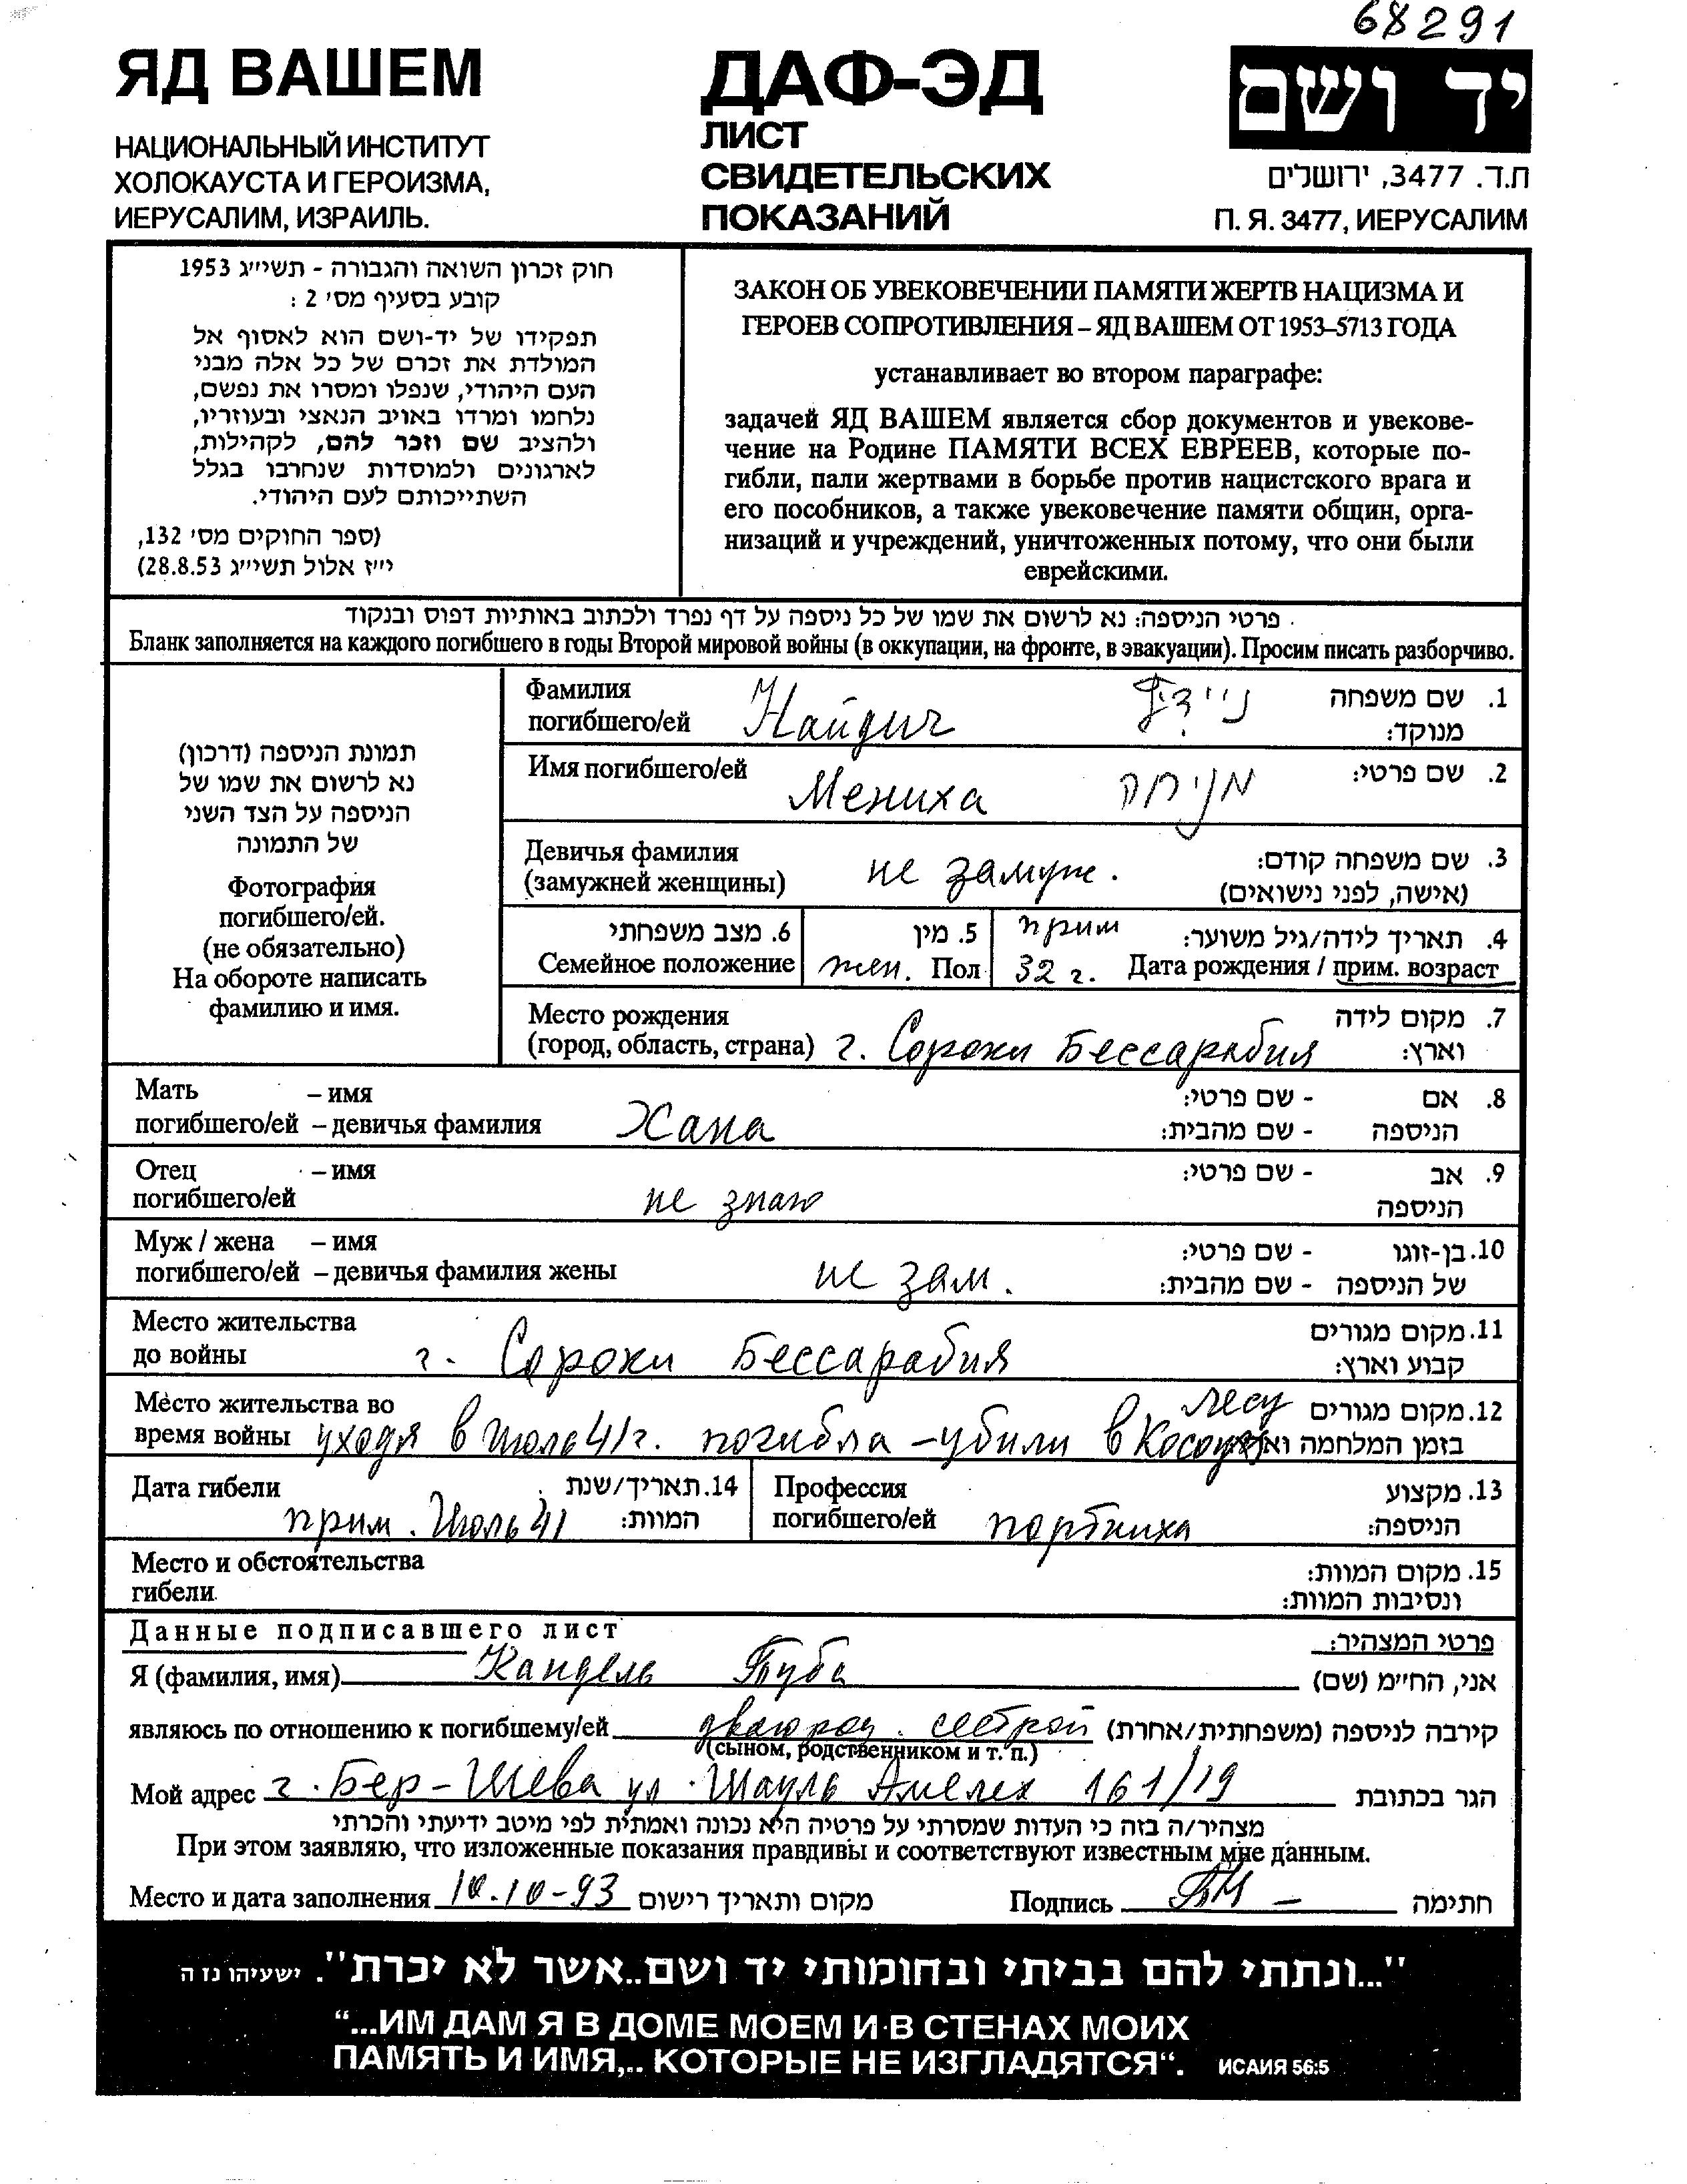 68291
ЯД ВАШЕМ
НАЦИОНАЛЬНЫЙ ИНСТИТУТ
ХОЛОКАУСТА И ГЕРОИЗМА,
ИЕРУСАЛИМ, ИЗРАИЛЬ.
ДАФ-ЭД
ЛИСТ
СВИДЕТЕЛЬСКИХ
ПОКАЗАНИЙ
יד ושם
ת.ד. 3477, ירושלים
П. Я. 3477, ИЕРУСАЛИМ
חוק זכרון השואה והגבורה - תשי״ג 1953
קובע בסעיף מס׳ 2 :
תפקידו של יד-ושם הוא לאסוף אל
המולדת את זכרם של כל אלה מבני
העם היהודי, שנפלו ומסרו את נפשם,
נלחמו ומרדו באויב הנאצי ובעוזריו,
ולהציב שם וזכר להם, לקהילות,
לארגונים ולמוסדות שנחרבו בגלל
השתייכותם לעם היהודי.
(ספר החוקים מס׳ 132,
י״ז אלול תשי״ג 28.8.53)
ЗАКОН ОБ УВЕКОВЕЧЕНИИ ПАМЯТИ ЖЕРТВ НАЦИЗМА И
ГЕРОЕВ СОПРОТИВЛЕНИЯ – ЯД ВАШЕМ ОТ 1953–5713 ГОДА
устанавливает во втором параграфе:
задачей ЯД ВАШЕМ является сбор документов и увекове-
чение на Родине ПАМЯТИ ВСЕХ ЕВРЕЕВ, которые по-
гибли, пали жертвами в борьбе против нацистского врага и
его пособников, а также увековечение памяти общин, орга-
низаций и учреждений, уничтоженных потому, что они были
еврейскими.
פרטי הניספה: נא לרשום את שמו של כל ניספה על דף נפרד ולכתוב באותיות דפוס ובנקוד
Бланк заполняется на каждого погибшего в годы Второй мировой войны (в оккупации, на фронте, в эвакуации). Просим писать разборчиво.
תמונת הניספה (דרכון)
נא לרשום את שמו של
הניספה על הצד השני
של התמונה
Фотография
погибшего/ей.
(не обязательно)
На обороте написать
фамилию и имя.
Фамилия שם משפחה .1
погибшего/ей Найдич מנוקד:
Имя погибшего/ей Мениха מניחה שם פרטי: .2
Девичья фамилия שם משפחה קודם: .3
(замужней женщины) не замуж. (אישה, לפני נישואים)
6. מצב משפחתי 5. מין прим תאריך לידה/גיל משוער: .4
Семейное положение жен. Пол 32 г. Дата рождения / прим. возраст
Место рождения מקום לידה .7
(город, область, страна) г. Сороки Бессарабия וארץ:
Мать – имя אם - שם פרטי: .8
погибшего/ей – девичья фамилия Хана הניספה - שם מהבית:
Отец – имя אב - שם פרטי: .9
погибшего/ей не знаю הניספה
Муж / жена – имя 10.בן-זוגו - שם פרטי:
погибшего/ей – девичья фамилия жены не зам. של הניספה - שם מהבית:
Место жительства 11.מקום מגורים
до войны г. Сороки Бессарабия קבוע וארץ:
Место жительства во лесу 12.מקום מגורים
время войны уходя в Июль 41 г. погибла – убили в בזמן המלחמה
Дата гибели 14.תאריך/שנת Профессия 13. מקצוע
прим. Июль 41 המוות: погибшего/ей портниха הניספה:
Место и обстоятельства 15. מקום המוות:
гибели ונסיבות המוות:
Данные подписавшего лист פרטי המצהיר:
Я (фамилия, имя) Кандель Туба אני, החי״מ (שם)
являюсь по отношению к погибшему/ей двоюрод. сестрой קירבה לניספה (משפחתית/אחרת)
(сыном, родственником и т. п.)
Мой адрес г. Бер-Шева ул. Шауль Амелех 161/19 הגר בכתובת
מצהיר/ה בזה כי העדות שמסרתי על פרטיה היא נכונה ואמתית לפי מיטב ידיעתי והכרתי
При этом заявляю, что изложенные показания правдивы и соответствуют известным мне данным.
Место и дата заполнения 10.10-93 מקום ותאריך רישום Подпись חתימה
"...ונתתי להם בביתי ובחומותי יד ושם..אשר לא יכרת". ישעיהו נז ה
“...ИМ ДАМ Я В ДОМЕ МОЕМ И В СТЕНАХ МОИХ
ПАМЯТЬ И ИМЯ,.. КОТОРЫЕ НЕ ИЗГЛАДЯТСЯ“. ИСАИЯ 56:5